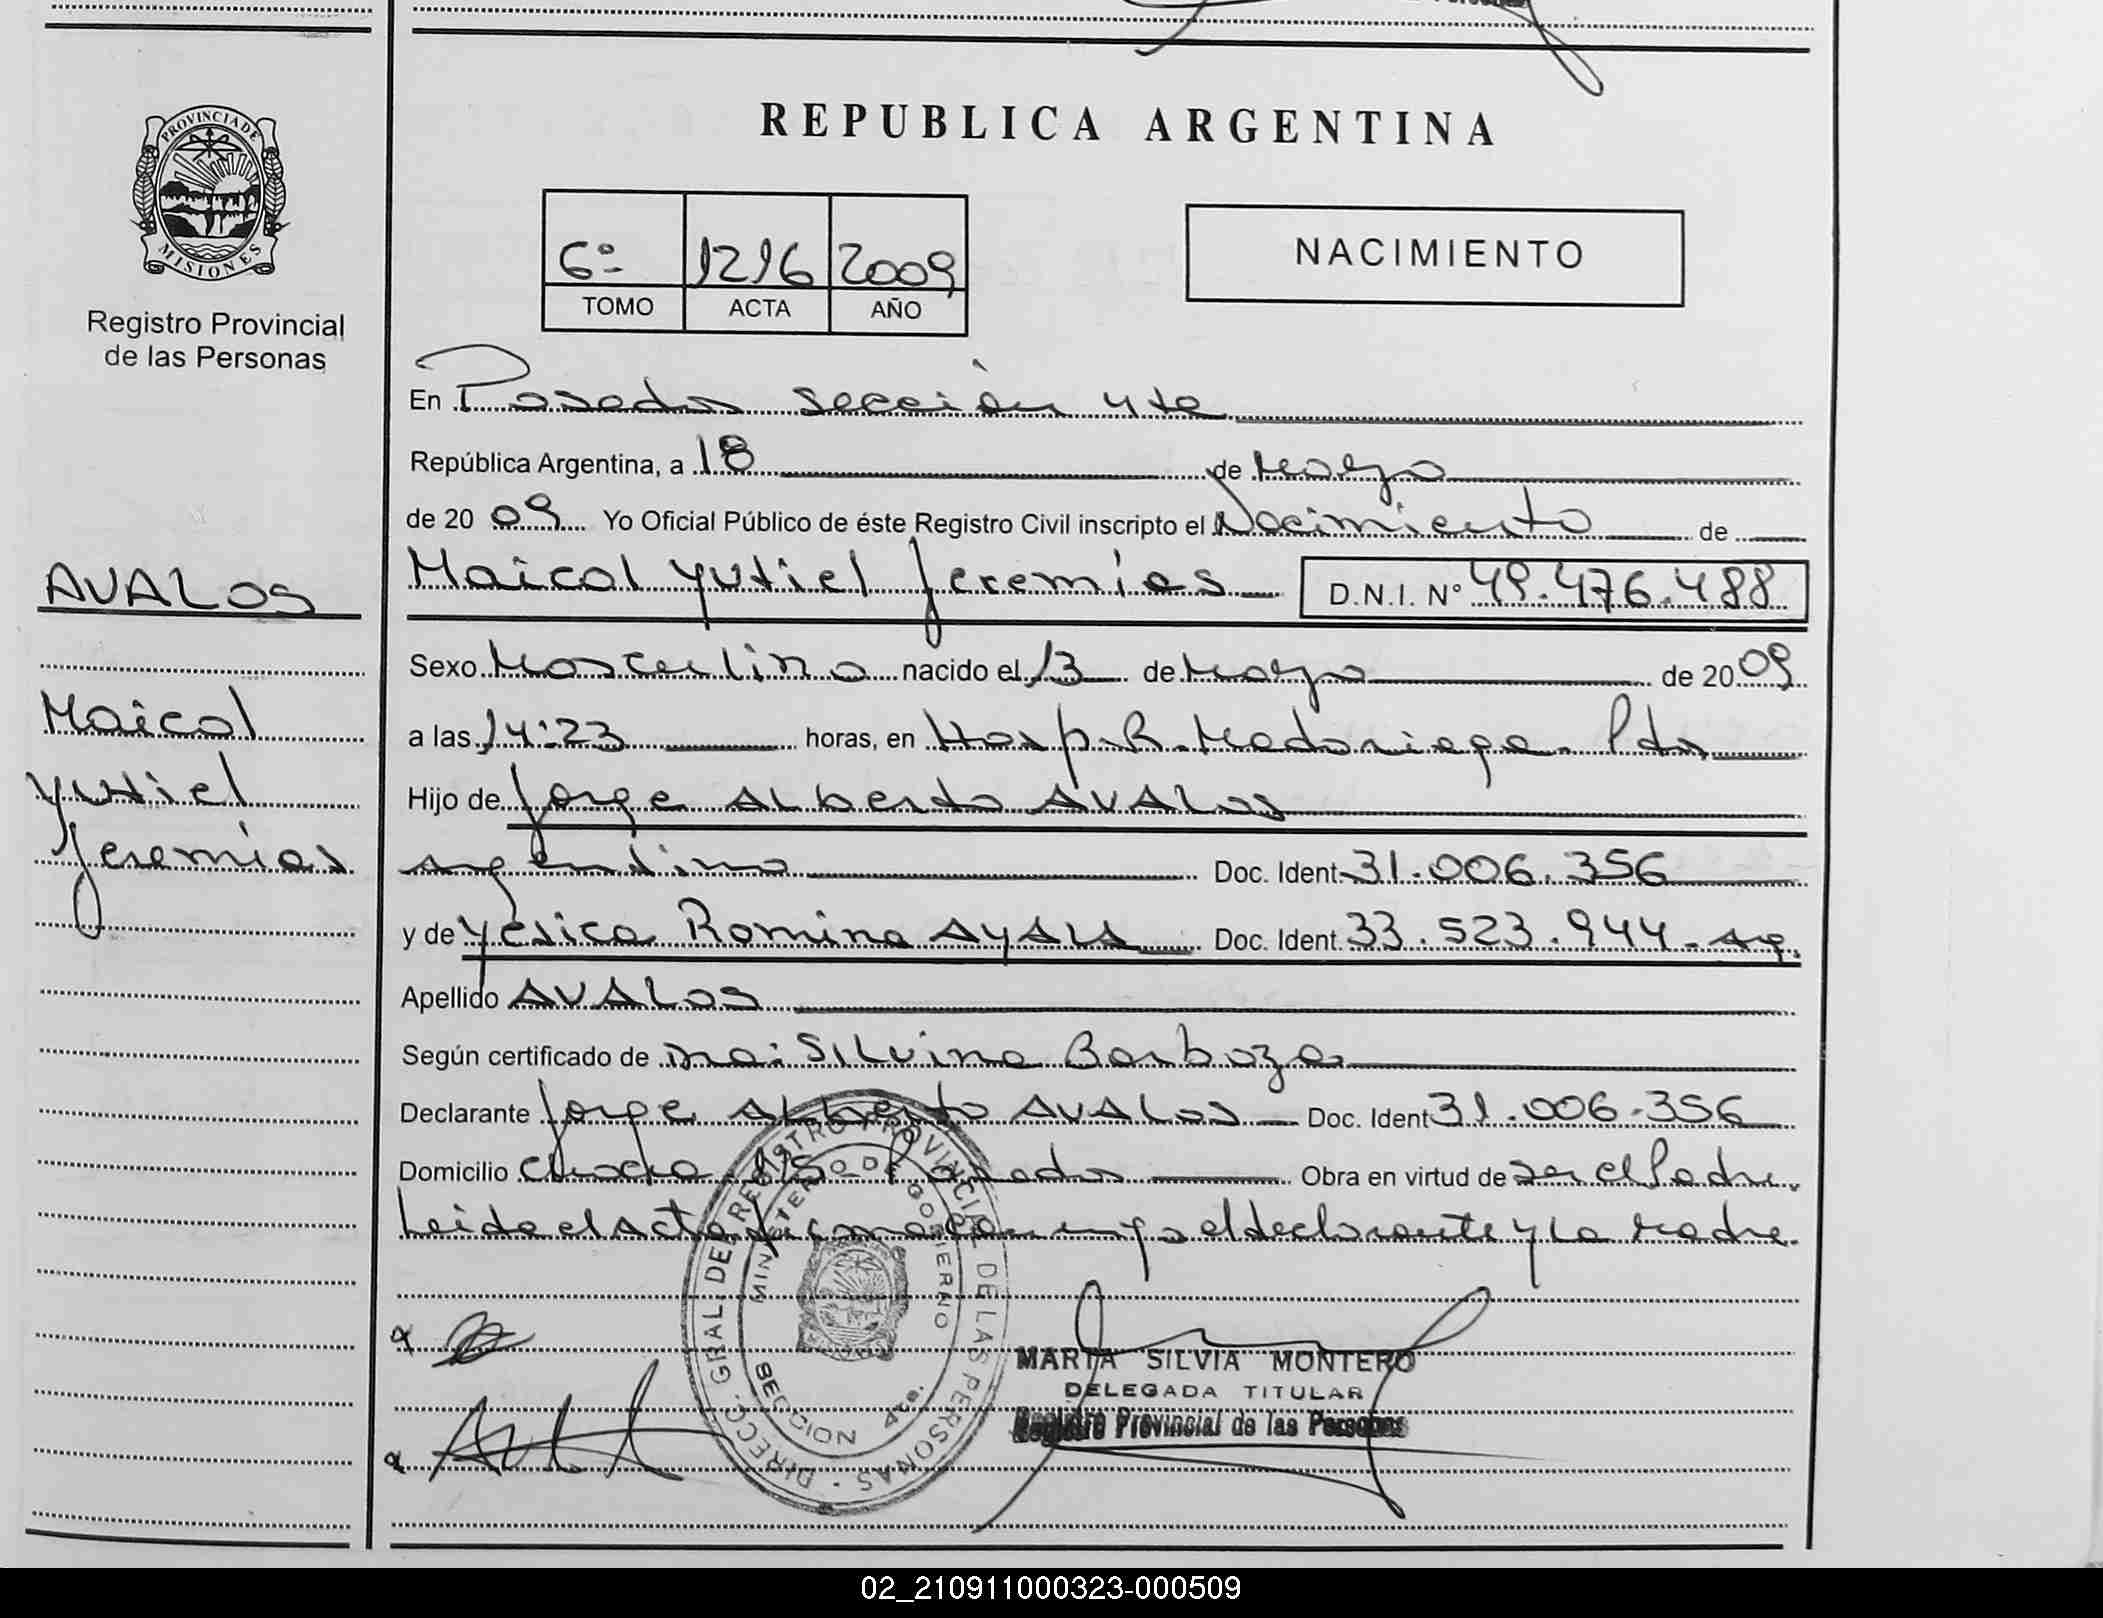 REPUBLICA ARGENTINA
PROVINCIA DE
MISIONES
Registro Provincial
de las Personas
6º 1216 2009
TOMO ACTA AÑO
NACIMIENTO
En Posadas sección 4ta
República Argentina, a 18 de Mayo
de 2009 Yo Oficial Público de éste Registro Civil inscripto el Nacimiento de
Maicol Yutiel Jeremías D.N.I. Nº 49.476.488
Sexo Masculino nacido el 13 de Mayo de 2009
a las 14:23 horas, en Hosp. R. Madariaga. Pdas
Hijo de Jorge Alberto AVALOS
argentino Doc. Ident. 31.006.356
y de Yesica Romina AYALA Doc. Ident. 33.523.944- arg.
Apellido AVALOS
Según certificado de Silvina Barboza
Declarante Jorge Alberto AVALOS Doc. Ident 31.006.356
Domicilio Posadas Obra en virtud de ser el Padre.
Leida el Acta firma con migo el declarante y la Madre.
AVALOS
Maicol
Yutiel
Jeremías
DIRECC. GRAL. DE REGISTRO PROVINCIAL DE LAS PERSONAS
MINISTERIO DE GOBIERNO
SECCION 4ta.
MARIA SILVIA MONTERO
DELEGADA TITULAR
Registro Provincial de las Personas
02_210911000323-000509